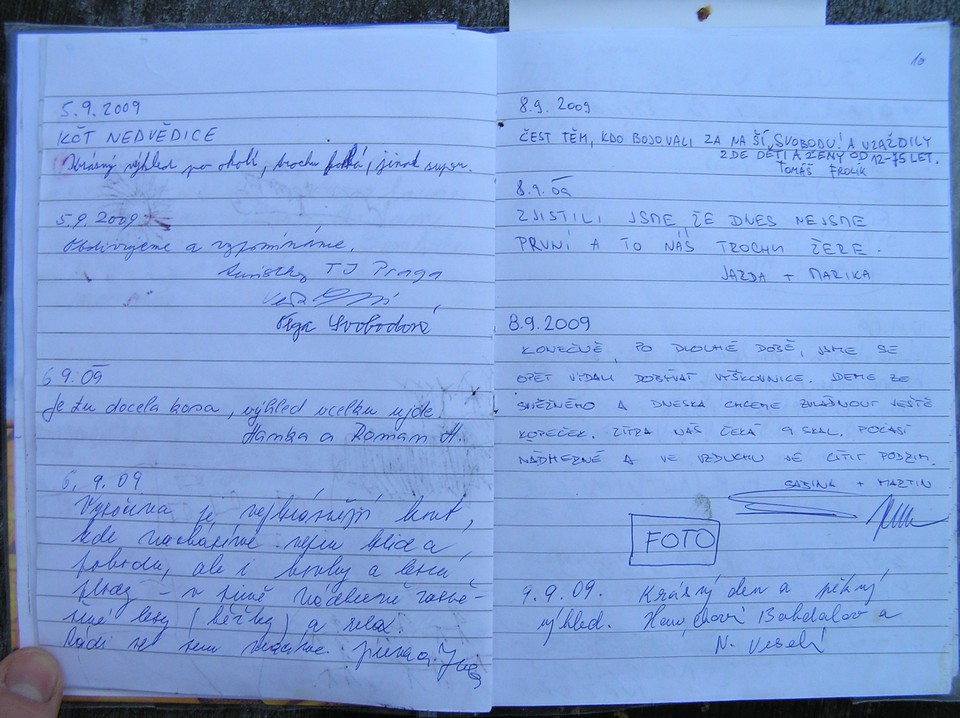 5.9.2009
KČT NEDVĚDICE
Krásný výhled po okolí, trochu fouká, jinak super.
5.9.2009
Obdivujeme a vzpomínáme.
TJ Praga
Olga Svobodová
6 9. 09
Je tu docela kosa, výhled vcelku ujde
Hanka a Roman H.
6. 9. 09
Vysočina je nejkrásnější kout,
kde nacházíme nejen klid a
pohodu, ale i houby a lesní
plody – v zimě nádherné zasně-
žené lesy (běžky) a relax.
Rádi se sem
10
8.9. 2009
ČEST TĚM, KDO BOJOVALI ZA NAŠÍ SVOBODU! A VRAŽDILY
ZDE DĚTI A ŽENY OD 12-75 LET.
TOMÁŠ FROLÍK
8.9. 09
ZJISTILI JSME, ŽE DNES NEJSME
PRVNÍ A TO NÁS TROCHU ŽERE.
JARDA + MARIKA
8.9.2009
KONEČNĚ, PO DLOUHÉ DOBĚ, JSME SE
OPĚT VYDALI DOBÝVAT VRŠKOVNICE. JDEME ZE
SNĚŽNÉHO A DNESKA CHCEME ZVLÁDNOUT JEŠTĚ
KOPEČEK. ZÍTRA NÁS ČEKÁ 9 SKAL. POČASÍ
NÁDHERNÉ A VE VZDUCHU JE CÍTIT PODZIM.
SABINA + MARTIN
FOTO
9.9.09. Krásný den a pěkný
výhled. Bohdalov a
N. Veselí